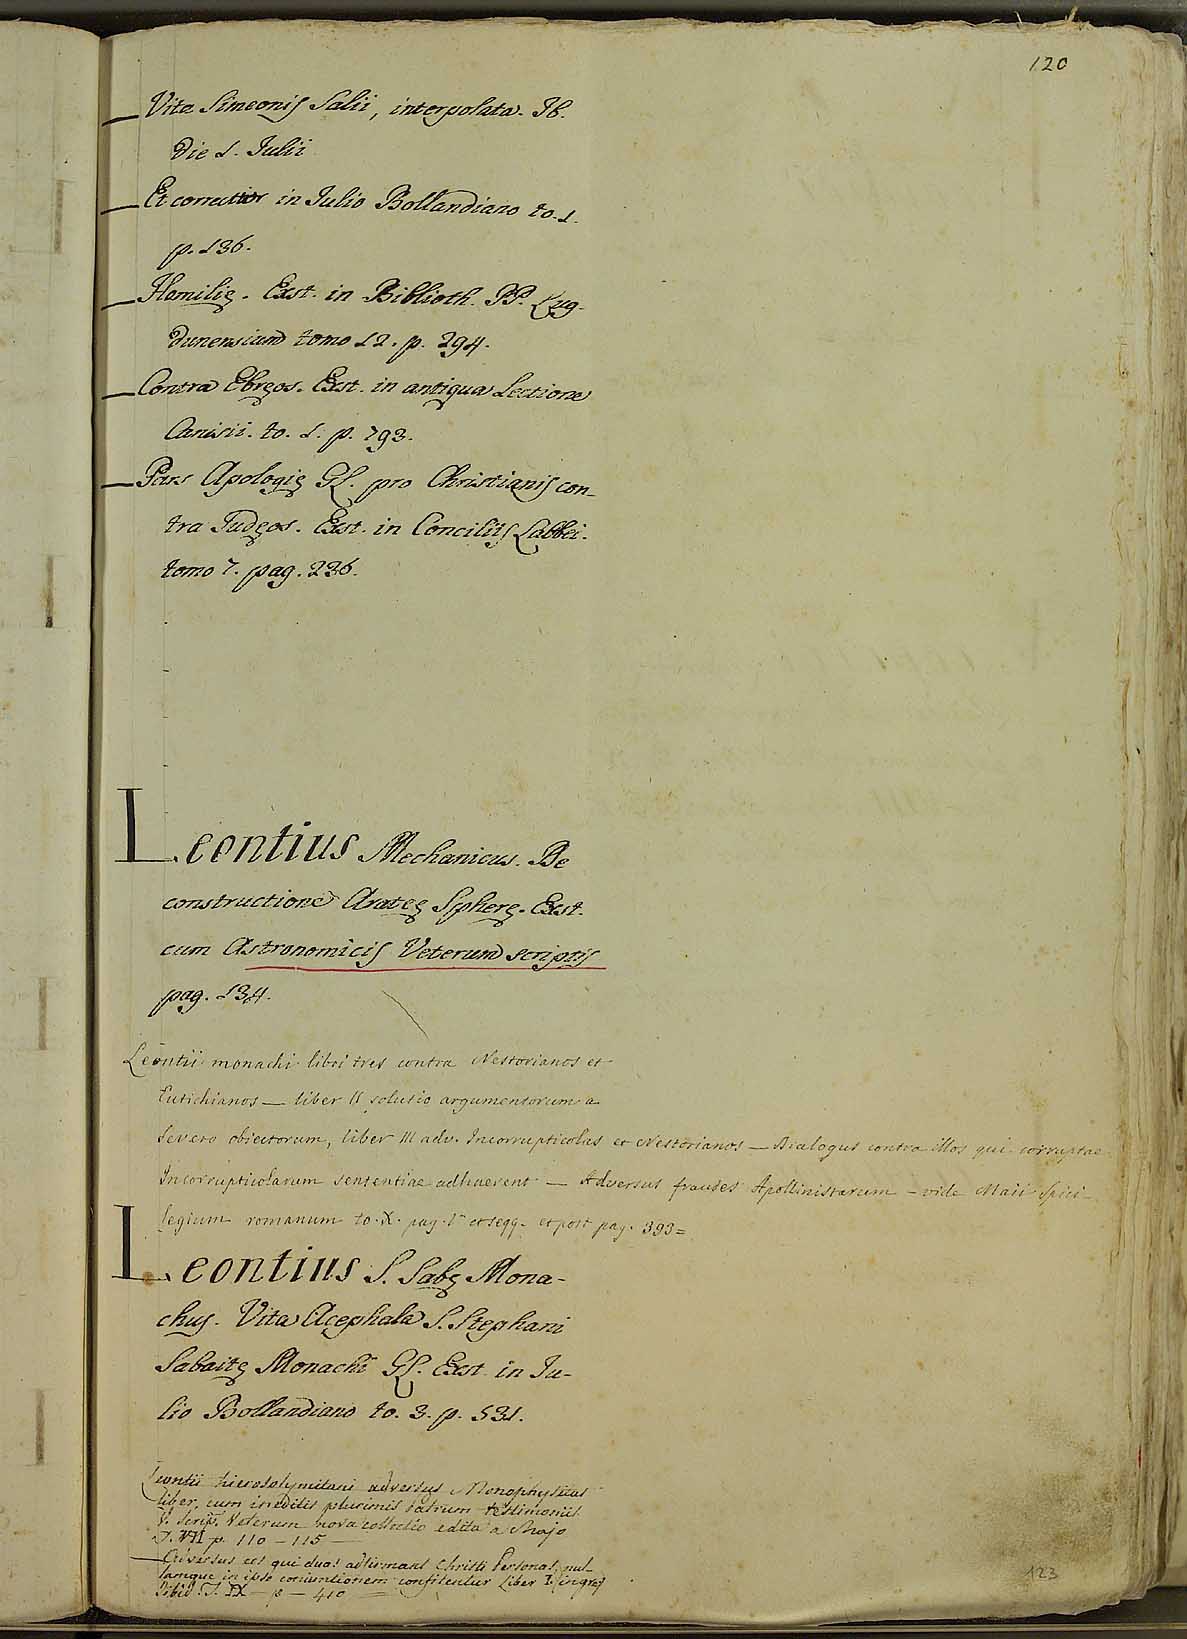 120
— Vita Simeonis Salii, interpolata. Ib.
die 1. Julii
— Et correctior in Julio Bollandiano to. 1.
p. 136.
— Homilię. Exst. in Biblioth. PP. Lug-
dunensium tomo 12. p. 294.
— Contra Ebręos. Exst. in antiqua Lectione
Canisii. to. 1. p. 793.
— Pars Apologię GL. pro Christianis con-
tra Judęos. Exst. in Conciliis Labbei.
tomo 7. pag. 236.
Leontius Mechanicus. De
constructione Aratęę Spherę. Exst.
cum Astronomicis Veterum scriptis
pag. 134.
Leontii monachi libri tres contra Nestorianos et
Eutichianos — liber II solutio argumentorum a
Severo obiectorum, liber III adv. Incorrupticolas et Nestorianos — Dialogus contra illos qui corruptae
Incorrupticolarum sententiae adhaerent — Adversus fraudes Apollinistarum — vide Maii Spici-
legium romanum to. X. pag. et seqq. et post pag. 393 =
Leontius S. Sabę Mona-
chus. Vita Acephala S. Stephani
Sabaitę Monachi GL. Exst. in Ju-
lio Bollandiano to. 3. p. 531.
Leontii hierosolymitani adversus Monophysitas
liber, cum ineditis plurimis Patrum testimoniis
V. Scrip. Veterum nova collectio edita a Majo
T. VII p. 110 — 115 —
— Adversus eos qui duas adfirmant Christi Personas, nul-
lamque in ipso coniunctionem confitentur Liber I.
Ibid. T. IX — p — 410
123